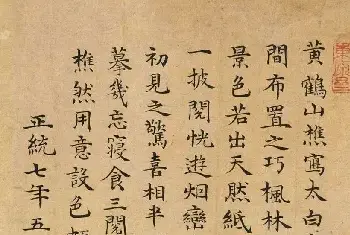 黄鶴山樵寫太白
間布置之巧楓林
景色若出天然紙
一披閱恍遊烟巒
初見之驚喜相半
摹幾忘寢食三閱
樵然用意設色頗
正統七年五